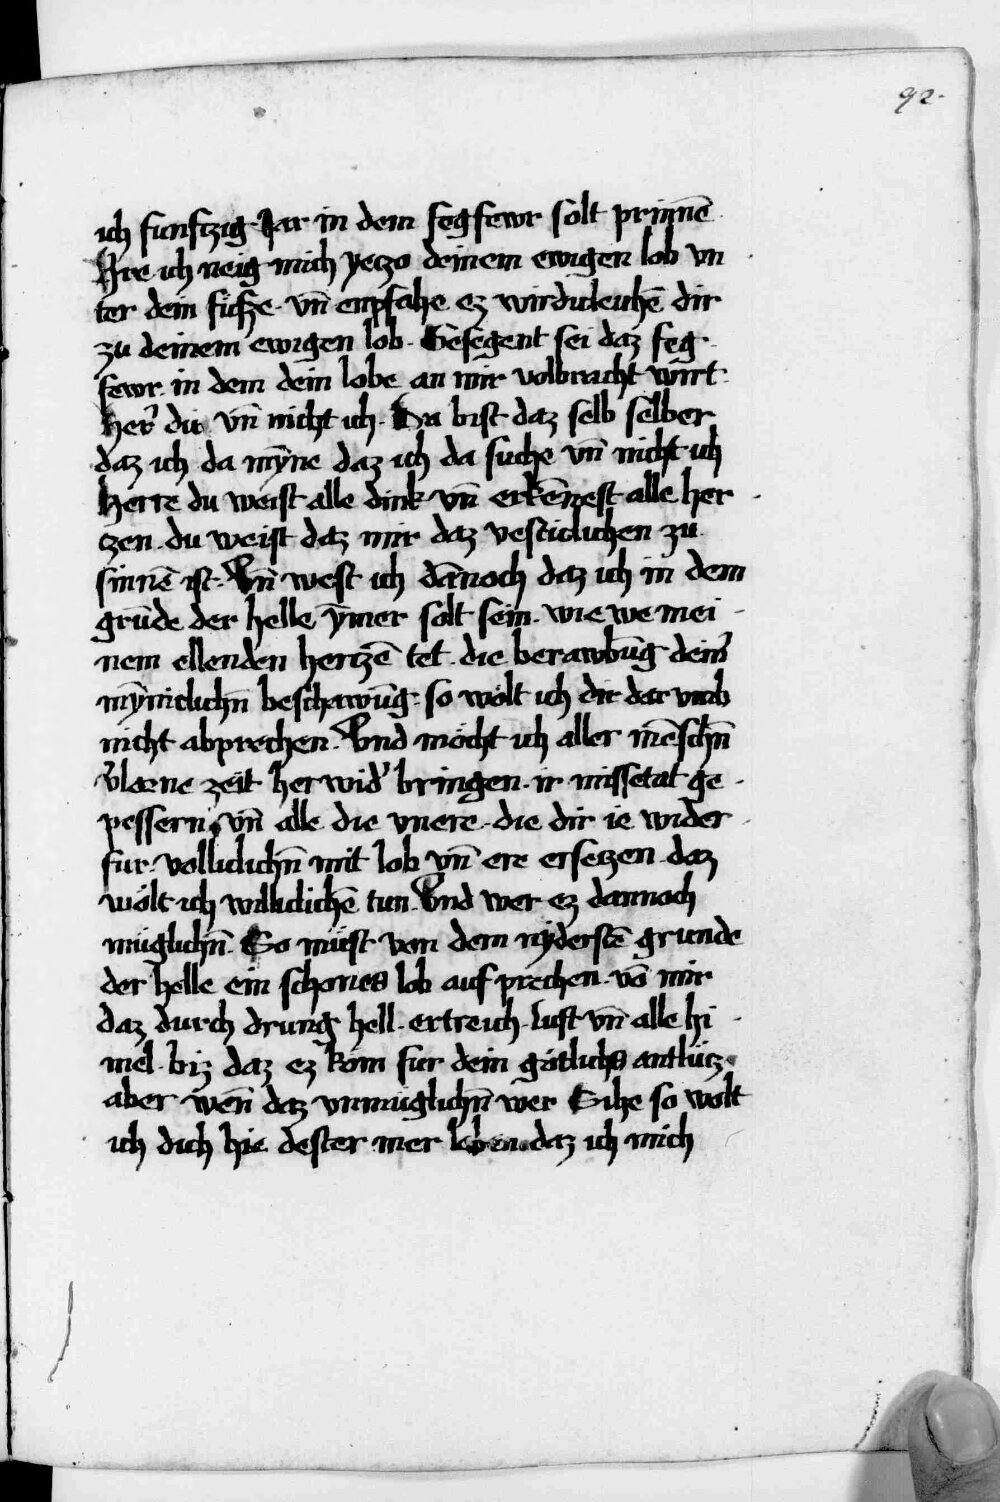 92.
ich funfczig Jar in dem fegfewr solt prinnē
Hrre ich neig mich yeczo deinem ewigen lob vn
ter dein füsze. vn̄ enpfahe ez wirdicleichē dir
zu deinem ewigen lob. Gesegent sei daz feg
fewr. in dem dein lobe an mir volbracht wirt
her̄ dir vn̄ nicht ich. Du bist daz selb selber
daz ich da mȳne daz ich da suche vn̄ nicht ich
herre du weist alle dink vn̄ erkēnest alle her
czen. du weist daz mir daz vesticlichen zu
sinnē ist. Vn̄ west ich dānoch daz ich in dem
grūde der helle ȳmer solt sein. wie we mei
nem ellenden herczē tet. die berawbūg dein̄
mȳniclichn̄ beschawūg. so wölt ich dir dar vmb
nicht abprechen. Vnd möcht ich aller mēschn̄
v̄lorne zeit her wid̄ bringen. ir missetat ge
pessern vn̄ alle die vnere. die dir ie wider
fur. volliclichn̄ mit lob vn̄ ere erseczen. daz
wölt ich williclichē tun. Vnd wer ez dannoch
müglichn̄. So müst von dem nyderstē grunde
der helle ein schones lob auf prechen. vō mir
daz durch drung hell. ertreich. luft vn̄ alle hi
mel. biz daz ez köm fur dein götlichs antlücz.
aber wen̄ daz vnmüglichn̄ wer Sihe so wolt
ich dich hie dester mer loben. daz ich mich